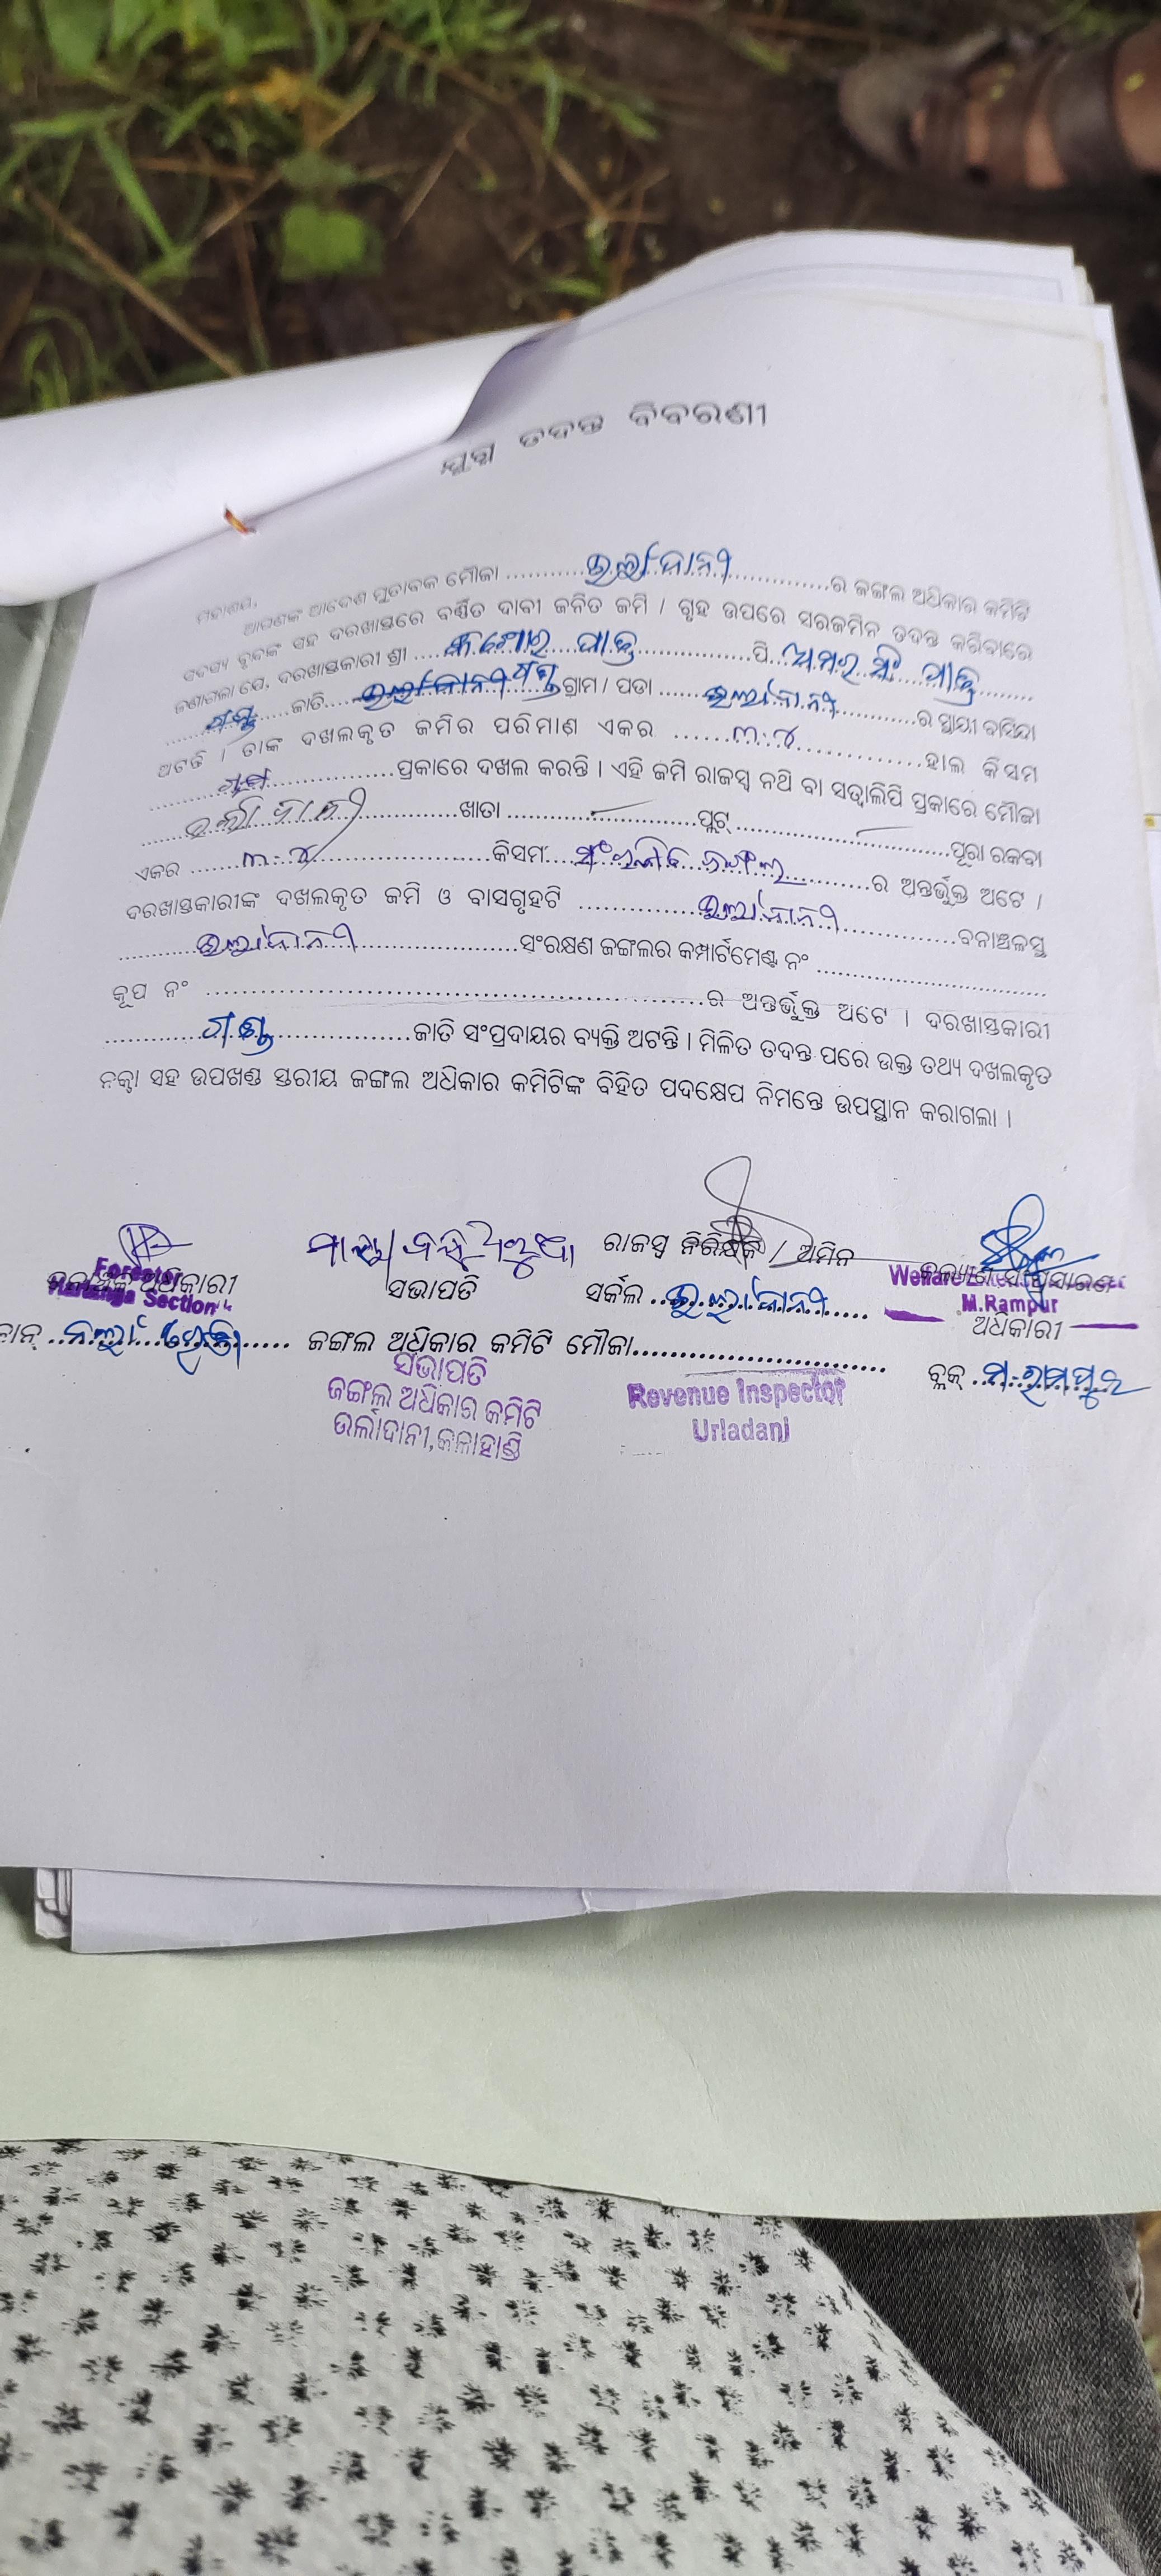 ଯୁଗ୍ମ ତଦନ୍ତ ବିବରଣୀ
ମହାଶୟ,
ଆପଣଙ୍କ ଆଦେଶ ମୁତାବକ ମୌଜା ..... ଉର୍ଲାଦାନୀ ..... ର ଜଙ୍ଗଲ ଅଧିକାର କମିଟି
ସଦସ୍ୟ ବୃନ୍ଦଙ୍କ ସହ ଦରଖାସ୍ତରେ ବର୍ଣ୍ଣିତ ଦାବୀ ଜନିତ ଜମି / ଗୃହ ଉପରେ ସରଜମିନ ତଦନ୍ତ କରିବାରେ
ଜଣାଗଲା ଯେ, ଦରଖାସ୍ତକାରୀ ଶ୍ରୀ ..... ପି.
..... ଜାତି..... ଗ୍ରାମ / ପଡା ..... ଉର୍ଲାଦାନୀ ..... ର ସ୍ଥାୟୀ ବାସିନ୍ଦା
ଅଟନ୍ତି । ତାଙ୍କ ଦଖଲକୃତ ଜମିର ପରିମାଣ ଏକର ..... ୩.୪ ..... ହାଲ କିସମ
..... ପ୍ରକାରେ ଦଖଲ କରନ୍ତି । ଏହି ଜମି ରାଜସ୍ୱ ନଥି ବା ସତ୍ୱାଲିପି ପ୍ରକାରେ ମୌଜା
ଉର୍ଲାଦାନୀ ..... ଖାତା ..... ପ୍ଲଟ୍ ..... ପୂରା ରକବା
ଏକର ..... ୩.୪ ..... କିସମ ..... ସଂରକ୍ଷିତ ଜଙ୍ଗଲ ..... ର ଅନ୍ତର୍ଭୁକ୍ତ ଅଟେ ।
ଦରଖାସ୍ତକାରୀଙ୍କ ଦଖଲକୃତ ଜମି ଓ ବାସଗୃହଟି ..... ଉର୍ଲାଦାନୀ ..... ବନାଞ୍ଚଳସ୍ଥ
..... ଉର୍ଲାଦାନୀ ..... ସଂରକ୍ଷଣ ଜଙ୍ଗଲର କମ୍ପାର୍ଟମେଣ୍ଟ ନଂ .....
କୂପ ନଂ ..... ର ଅନ୍ତର୍ଭୁକ୍ତ ଅଟେ । ଦରଖାସ୍ତକାରୀ
..... ଗଣ୍ଡ ..... ଜାତି ସଂପ୍ରଦାୟର ବ୍ୟକ୍ତି ଅଟନ୍ତି । ମିଳିତ ତଦନ୍ତ ପରେ ଉକ୍ତ ତଥ୍ୟ ଦଖଲକୃତ
ନକ୍ସା ସହ ଉପଖଣ୍ଡ ସ୍ତରୀୟ ଜଙ୍ଗଲ ଅଧିକାର କମିଟିଙ୍କ ବିହିତ ପଦକ୍ଷେପ ନିମନ୍ତେ ଉପସ୍ଥାନ କରାଗଲା ।
ରାଜସ୍ୱ ନିରିକ୍ଷକ / ଅମିନ
Forester ଅଧିକାରୀ ସଭାପତି ସର୍କଲ ..... ଉର୍ଲାଦାନୀ ..... Welfare
Section M.Rampur
ଅଧିକାରୀ
ଜଙ୍ଗଲ ଅଧିକାର କମିଟି ମୌଜା..... ବ୍ଲକ୍ ..... ମ.ରାମପୁର
ସଭାପତି
ଜଙ୍ଗଲ ଅଧିକାର କମିଟି
ଉର୍ଲାଦାନୀ,କଳାହାଣ୍ଡି
Revenue Inspector
Urladani